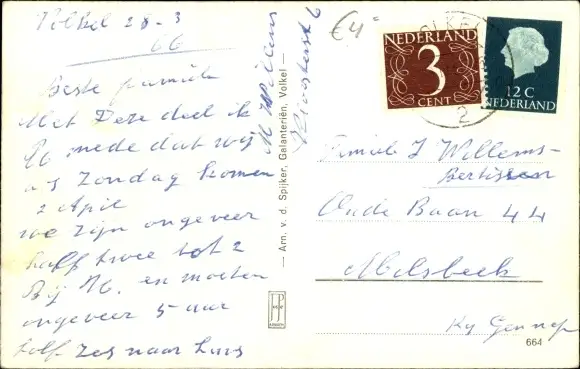 Volkel 28-3
66
Beste familie
Met Deze deel ik
U mede dat wij
a s Zondag komen
2 April
we zijn ongeveer
half twee tot 2
Bij M. en moeten
ongeveer 5 uur
half zes naar huis
M Willems
Kloosterst 6
Arn. v. d. Spijker, Galanterieën, Volkel
€4
NEDERLAND
3
CENT
12 C
NEDERLAND
2
Familie J Willems-
Oude Baan 44
Milsbeek
Ky Gennep
664